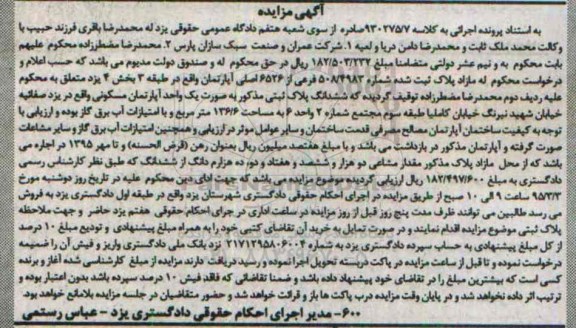 آگهی مزایده
به استناد پرونده اجرائی به کلاسه 930275/7صادره از سوی شعبه هفتم دادگاه عمومی حقوقی یزد له محمدرضا باقری فرزند حبیب با
وکالت محمد ملک ثابت و محمدرضا دامن دریا و لعیه 1.شرکت عمران و صنعت سبک سازان پارس 2.محمدرضا مضطرزاده محکوم علیهم
بابت محکوم به و نیم عشر دولتی متضامنا مبلغ 182/503/233 ریال در حق محکوم له و صندوق دولت مدیوم می باشد که حسب اعلام و
درخواست محکوم له مازاد پلاک ثبت شده شماره 508/4983 فرعی از 6526 اصلی آپارتمان واقع در طبقه 3 بخش 4 یزد متعلق به محکوم
علیه ردیف دوم محمدرضا مضطرزاده توقیف گردیده که ششدانگ پلاک ثبتی مذکور به صورت یک واحد آپارتمان مسکونی واقع در یزد صفائیه
خیابان شهید نیرنگ خیابان کاملیا طبقه سوم مجتمع شماره 2 واحد 6 به مساحت 136/6 متر مربع و با امتیازات آب برق گاز بوده و ارزیابی با
توجه به کیفیت ساختمان آپارتمان مصالح مصرفی قدمت ساختمان و سایر عوامل موثر در ارزیابی و همچنین امتیازات آب برق گاز و سایر مشاعات
صورت گرفته و آپارتمان مذکور در بازداشت می باشد و با مبلغ هفتصد میلیون ریال بعنوان رهن (قرض الحسنه) و تا مهر 1395 در اجاره می
باشد که از محل مازاد پلاک مذکور مقدار مشاعی دو هزار و ششصد و هفتاد و دو ده هزارم دانگ از ششدانگ که طبق نظر کارشناس رسمی
دادگستری به مبلغ 182/497/600 ریال ارزیابی گردیده موضوع مزایده می باشد که جهت ادای دین محکوم علیه در تاریخ روز دوشنبه مورخ
95/3/3 ساعت 9 الی 10 صبح از طریق مزایده در اجرای احکام حقوقی دادگستری شهرستان یزد واقع در طبقه اول دادگستری یزد به فروش
می رسد طالبین می توانند ظرف مدت پنج روز قبل از روز مزایده در ساعت اداری در جرای احکام حقوقی هفتم یزد حاضر و جهت ملاحظه
پلاک ثبتی موضوع مزایده اقدام نمایند و در صورت تمایل به خرید آن تقاضای کتبی خود را به همراه مبلغ پیشنهادی و تودیع مبلغ 10 درصد
از کل مبلغ پیشنهادی به حساب سپرده دادگستری یزد به شماره 2171295806004 نزد بانک ملی دادگستری واریز و فیش آن را ضمیمه
درخواست نموده و تا قبل از ساعت مزایده در پاکت دربسته تحویل اجرا نموده و رسید دریافت دارند مزایده از مبلغ کارشناسی شده آغاز و برنده
کسی است که بیشترین مبلغ را در تقاضای خود پیشنهاد داده باشد و ضمنا تقاضائی که فاقد فیش 10 درصد سپرده باشد بدون اعتبار بوده و
ترتیب اثر داده نخواهد شد و در پایان وقت مزایده درب پاکت ها باز و قرائت خواهد شد و حضور متقاضیان در جلسه مزایده بلامانع خواهد بود.
600- مدیر اجرای احکام حقوقی دادگستری یزد - عباس رستمی